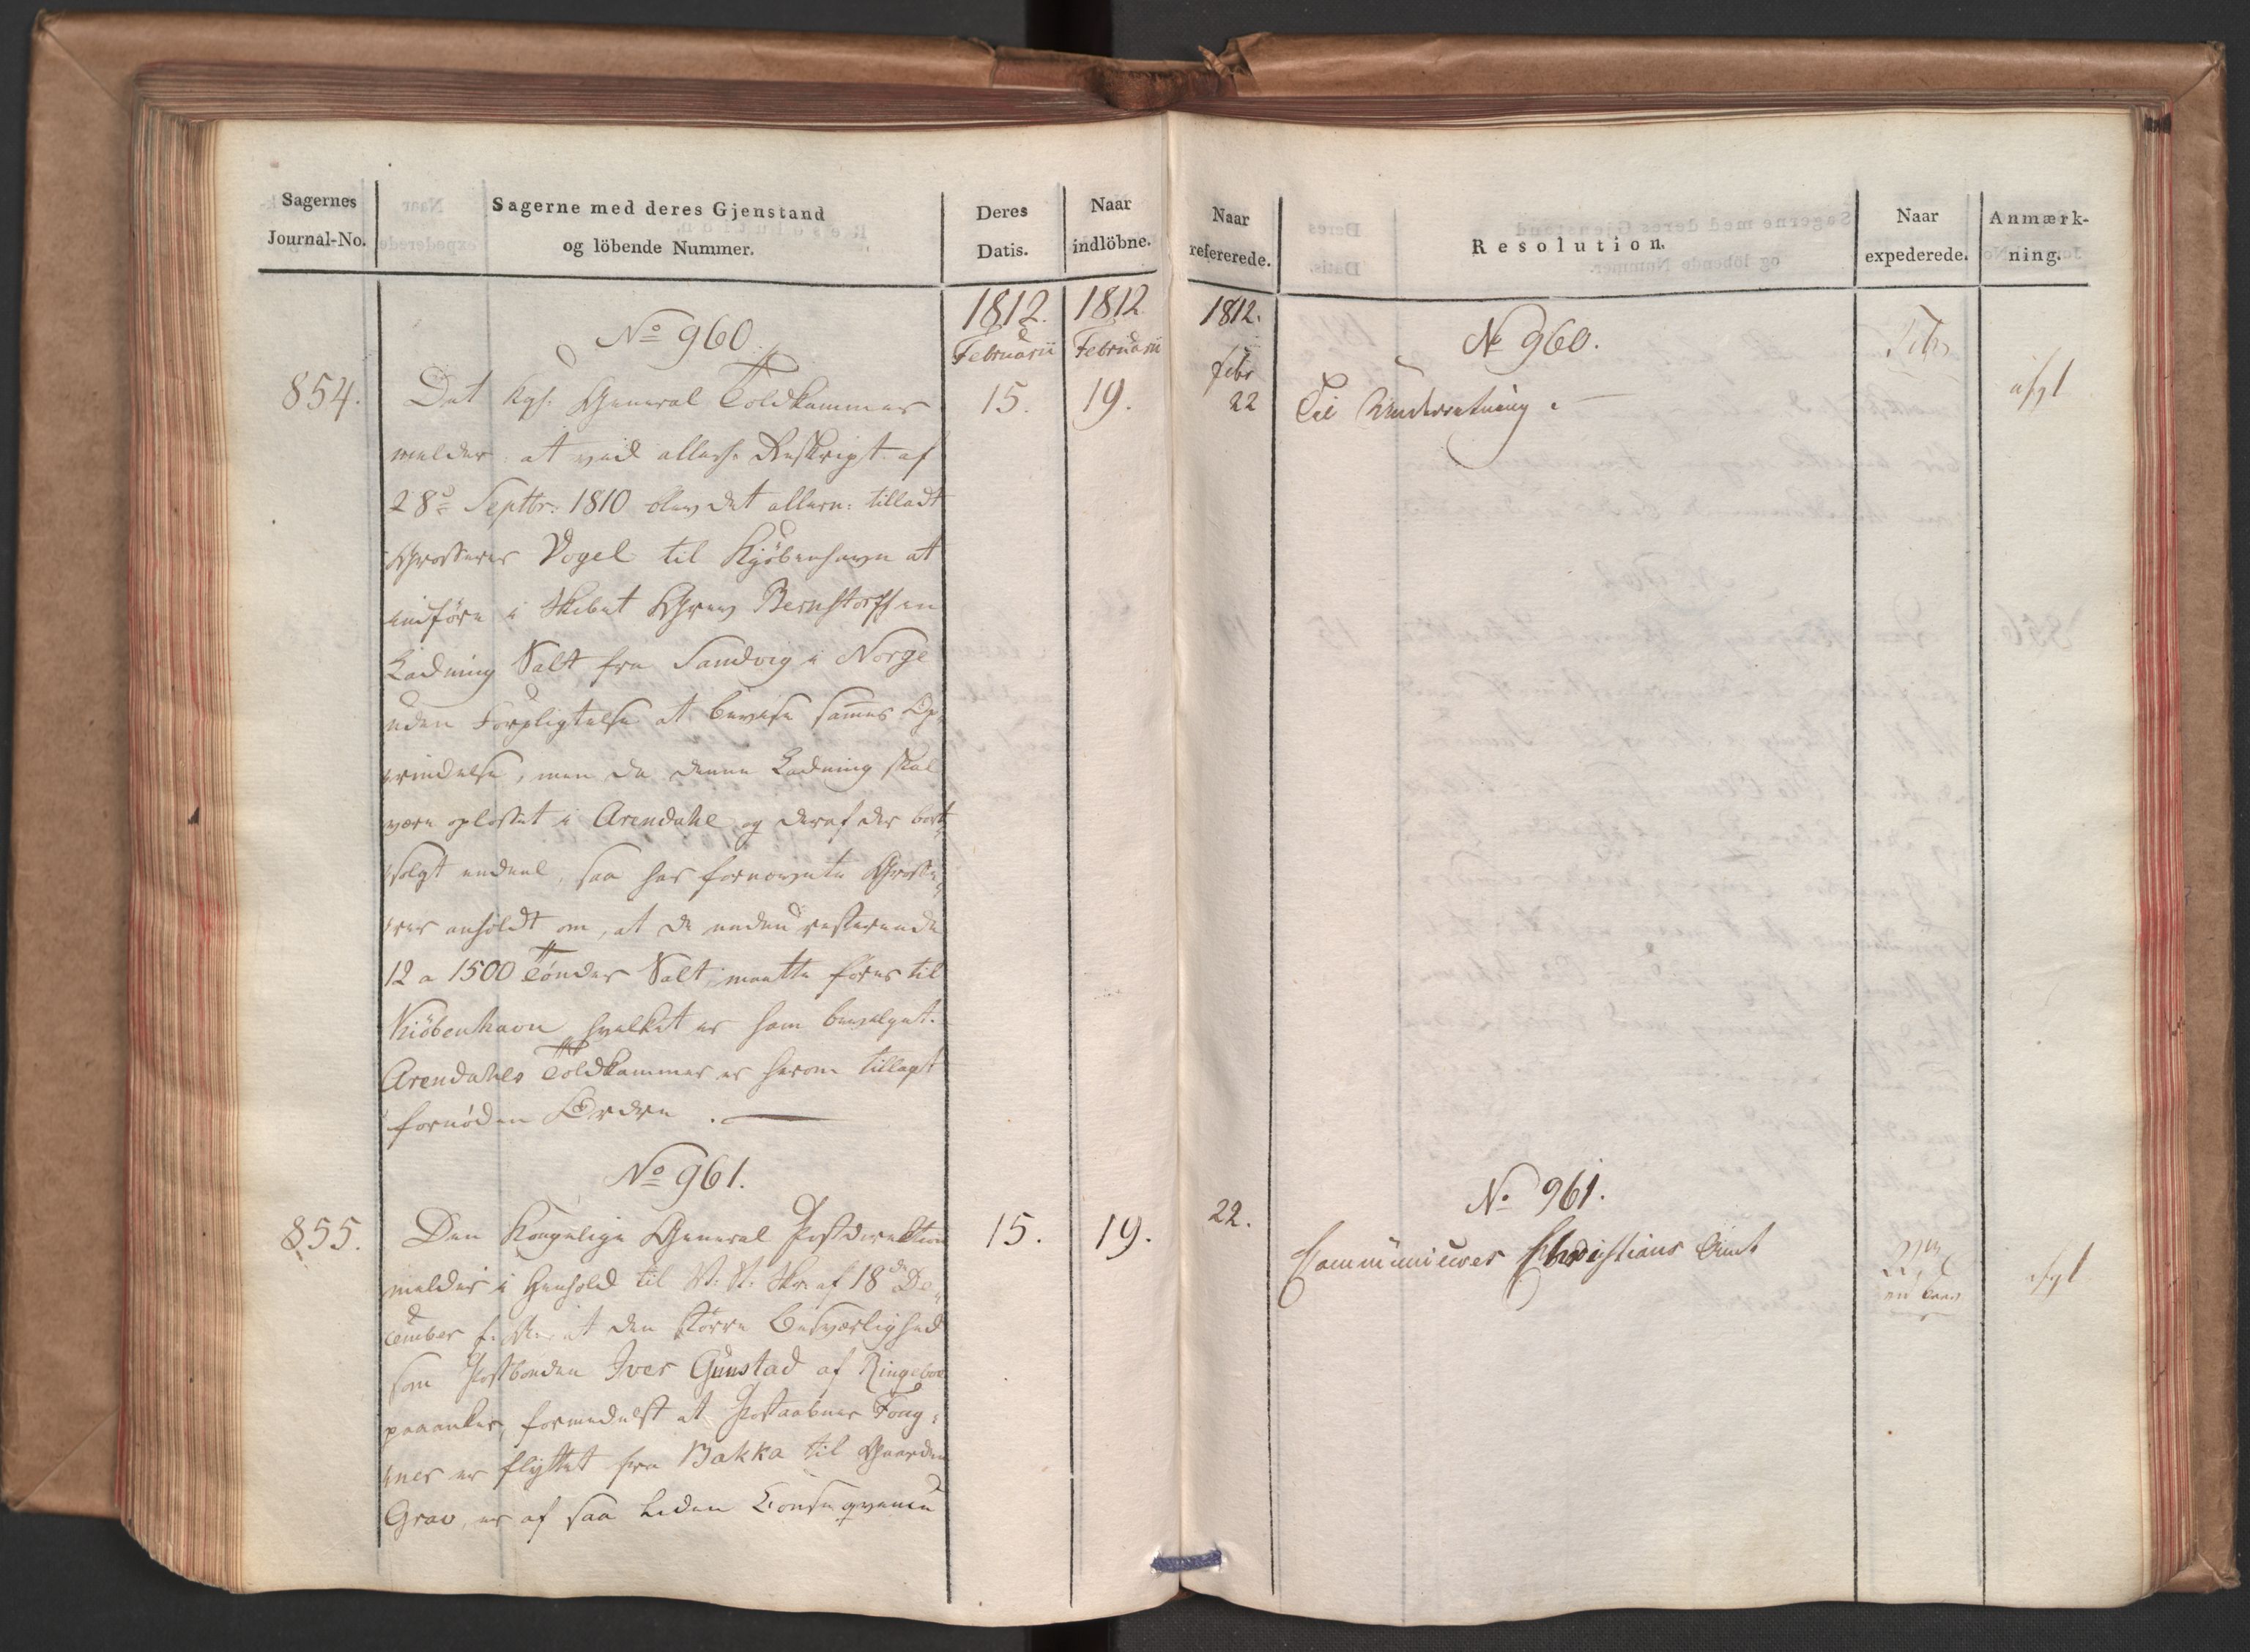 Sagernes
Journal-No.
Sagerne med deres Gjenstand
og löbende Nummer.
Deres
Datis.
Naar
indlöbne.
1812.
Februarii
1812
Februarii
No 960.
854.
Det kgl. General Toldkammer
15.
19.
melder, at ved allerh. Reskript af
28de Septbr: 1810 blev det allern: tilladt
Grosserer Vogel til Kjöbenhavn at
indföre i Skibet Grev Bernstorff en
Ladning Salt fra Sandvig i Norge
uden Forpligtelse at bevise sammes Op-
rindelse, men da denne Ladning skal
være oplosset i Arendahl og deraf der bort-
solgt endeel, saa har fornævnte Grosse-
rer anholdt om, at de endnu resterende
12 a 1500 Tönder Salt maatte föres til
Kiöbenhavn hvilket er ham bevilget.
Arendahls Toldkammer er herom tillagt
fornöden Ordre.
No 961.
855.
Den Kongelige General Postdirektion
15.
19.
melder i Henhold til Skr. af 18de De-
cember at den större Besværlighed
som Postbonden Iver Gunstad af Ringeboe
paaanker, formedelst at Postaabner Foug-
ner er flyttet fra Bakka til Gaarden
Grav, er af saa liden Conseqvence
Naar
refererede.
Resolution.
Naar
expederede.
Anmærk-
ning.
1812.
febr
22
No 960.
Til Underretning.
afgl
22.
No 961.
Communiceres Christians Amt
afgl